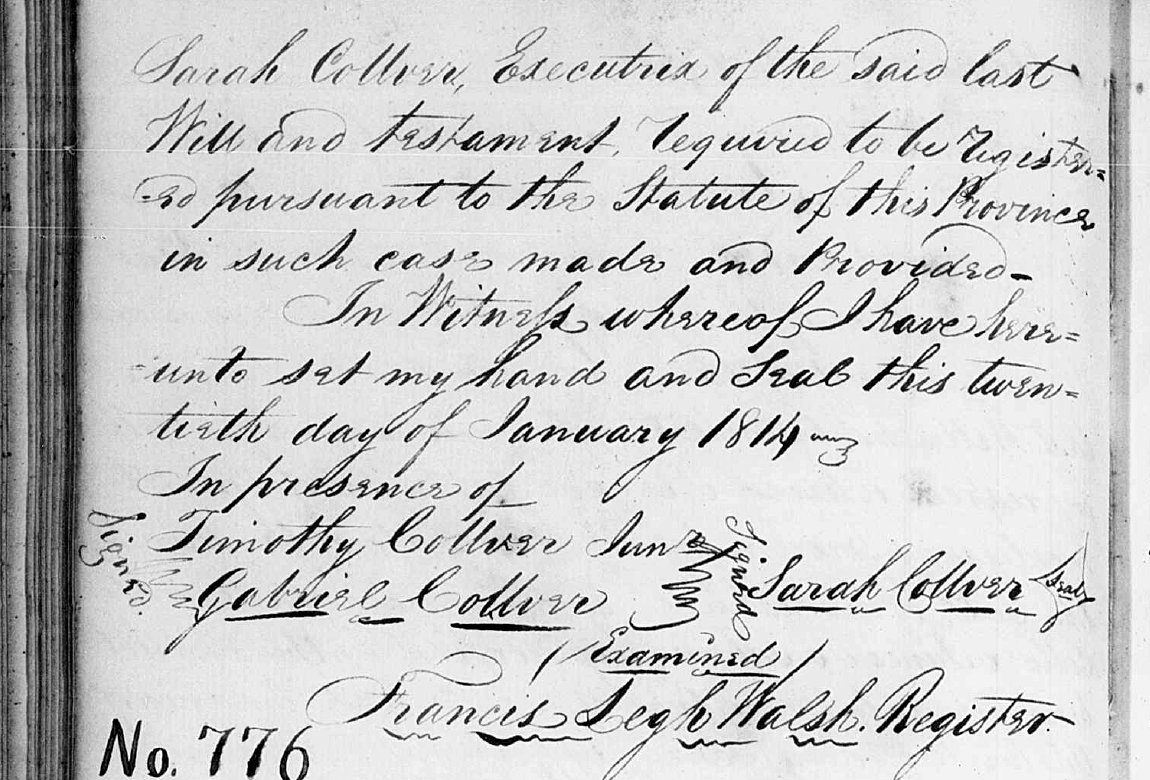 Sarah Collver, Executrix of the said last
Will and testament, required to be register=
=ed pursuant to the Statute of this Province
in such case made and Provided-
In Witness whereof I have here=
=unto set my hand and Seal this twen=
tieth day of January 1814
In presence of
Signed Timothy Collver Junr Signed Sarah Collver Seal
Gabriel Collver
(Examined)
Francis Legh Walsh. Register.
No. 776